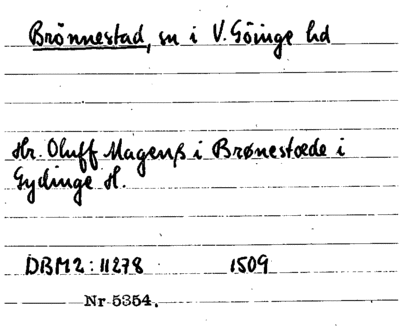 Brönnestad, sn i V. Göinge hd
Hr. Oluff Magenß i Brønestæde i
Gydinge H.
DBM2: 11278 1509
Nr 5354.